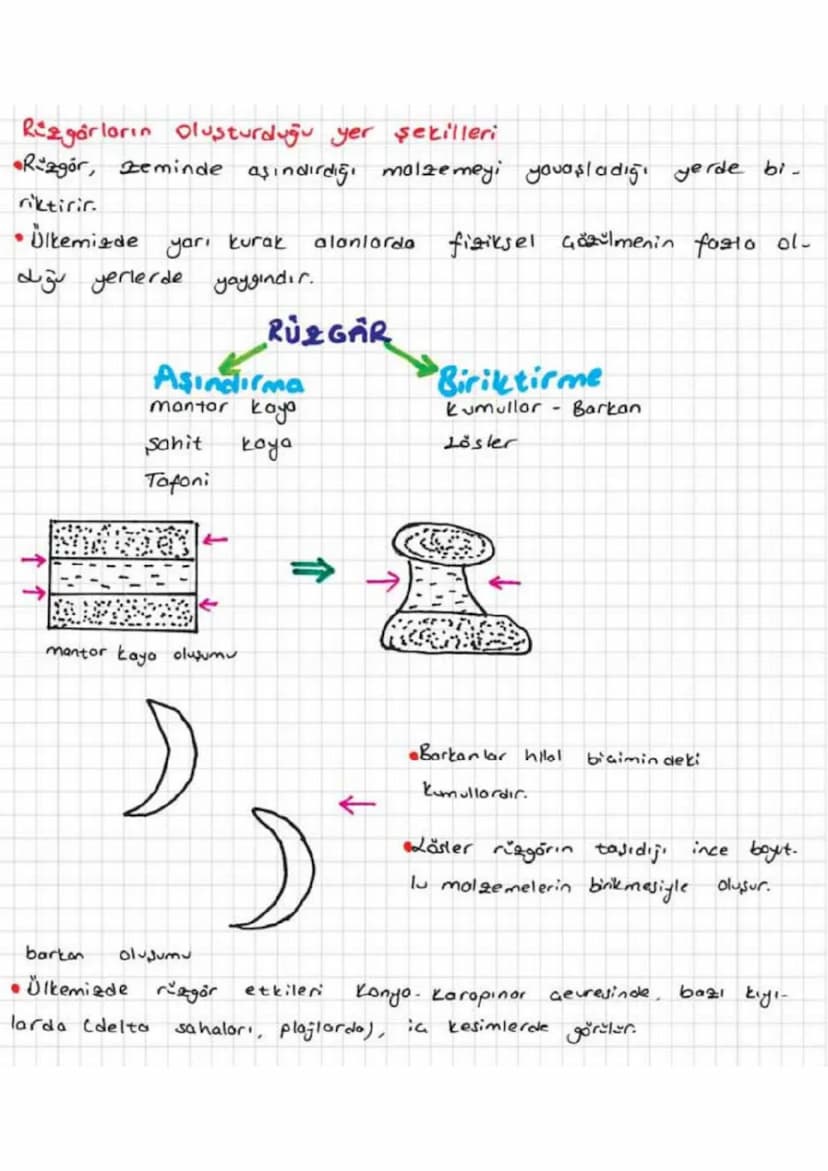 Rüzgârların oluşturduğu yer şekilleri
•Rüzgâr, zeminde aşındırdığı malzemeyi yavaşladığı yerde bi-
riktirir.
•Ülkemizde yarı kurak alanlarda fiziksel çözülmenin fazla ol-
duğu yerlerde yaygındır.
RÜZGÂR
Aşındırma Biriktirme
mantar kaya Kumullar - Barkan
Şahit kaya Lösler
Tafoni
mantar kaya oluşumu
•Barkanlar hilal biçimindeki
kumullardır.
•Lösler rüzgârın taşıdığı ince boyut-
lu malzemelerin birikmesiyle oluşur.
barkan oluşumu
•Ülkemizde rüzgâr etkileri Konya-Karapınar çevresinde, bazı kıyı-
larda (delta sahaları, plajlarda), iç kesimlerde görülür.